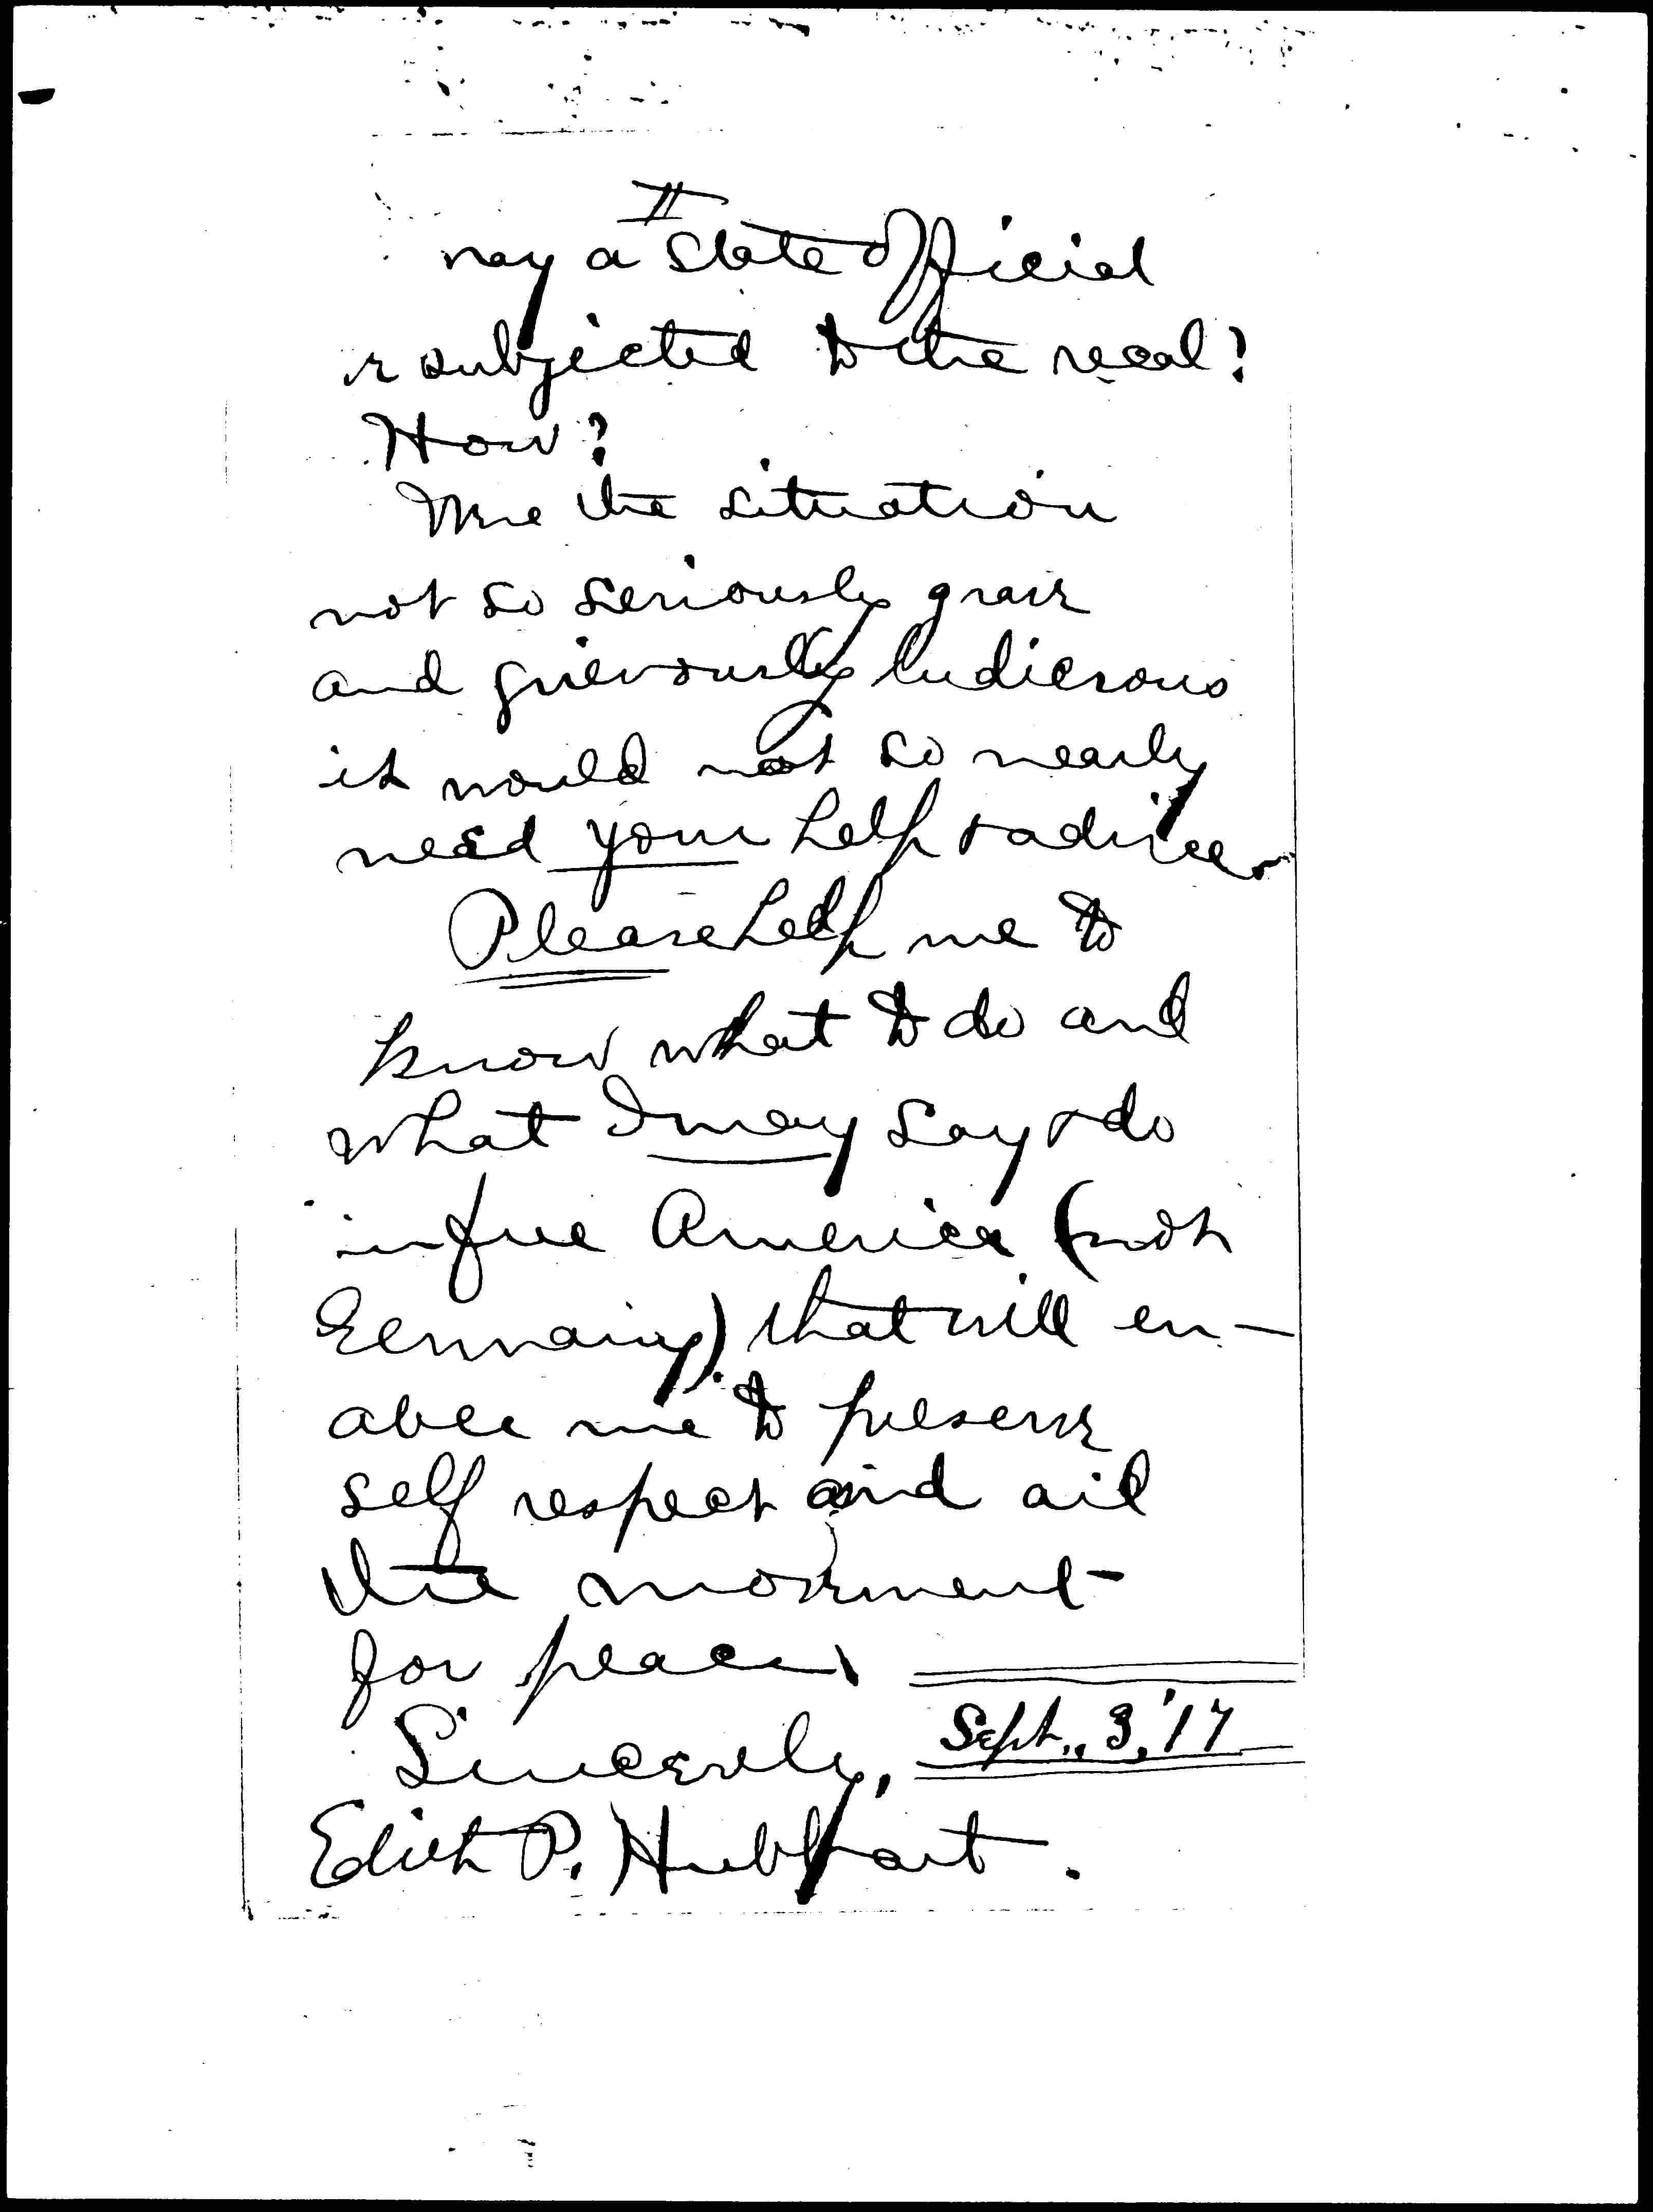 II
may a State official
r subjected to the recal?
How?
Were the situation
not so seriously grave
and grievously ludicrous
it would not so nearly
need your help & advice.
Please help me to
know what to do and
what I may say & do
in free America (not
Germany). that will en-
able me to preserve
self respect and aid
the movement
for peace.
Sept., 3, '17
Sincerely,
Edith P.